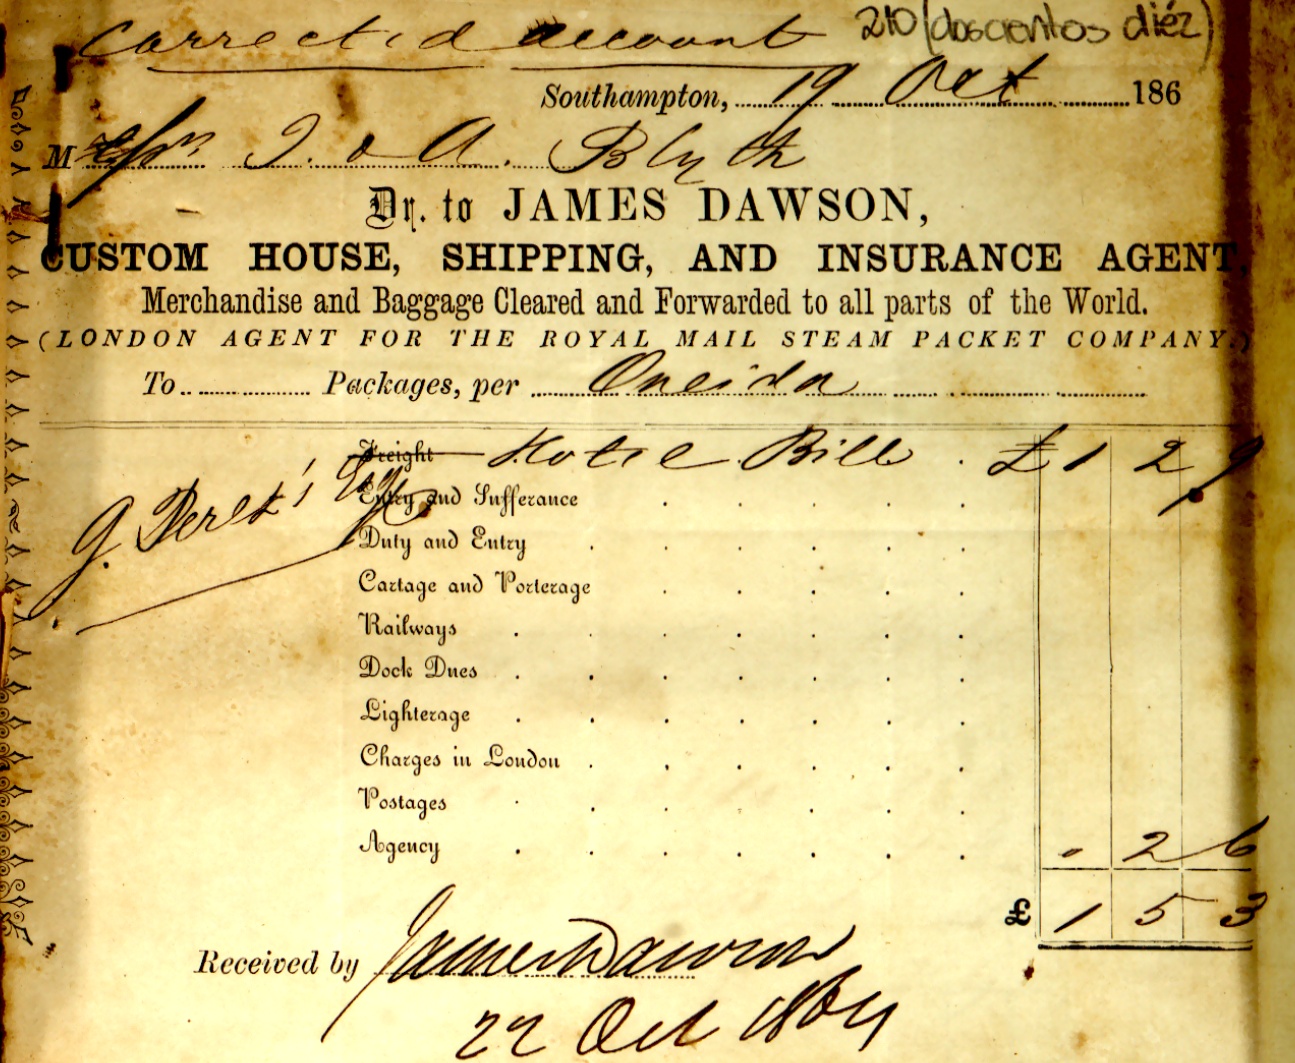 Corrected account 210 (doscientos diéz)
Southampton, 19 Oct 186
Messrs J. & A. Blyth
Dr. to JAMES DAWSON,
CUSTOM HOUSE, SHIPPING, AND INSURANCE AGENT,
Merchandise and Baggage Cleared and Forwarded to all parts of the World.
(LONDON AGENT FOR THE ROYAL MAIL STEAM PACKET COMPANY.)
To Packages, per Oneida
Freight Hotel Bill £ 1 2 9
G. Esq
Entry and Sufferance
Duty and Entry
Cartage and Porterage
Railways
Dock Dues
Lighterage
Charges in London
Postages
Agency . 2 6
£ 1 5 3
Received by James Dawson
22 Oct 1864